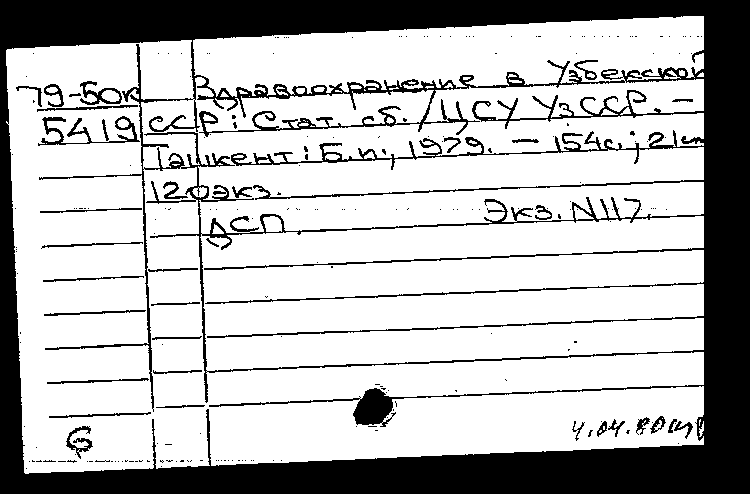 79-50к Здравоохранение в Узбекской
5419 ССР: Стат. сб. / ЦСУ УзССР. –
Ташкент: Б.и., 1979. – 154с.; 21см
120экз.
ДСП. Экз. N117.
6
4.04.80